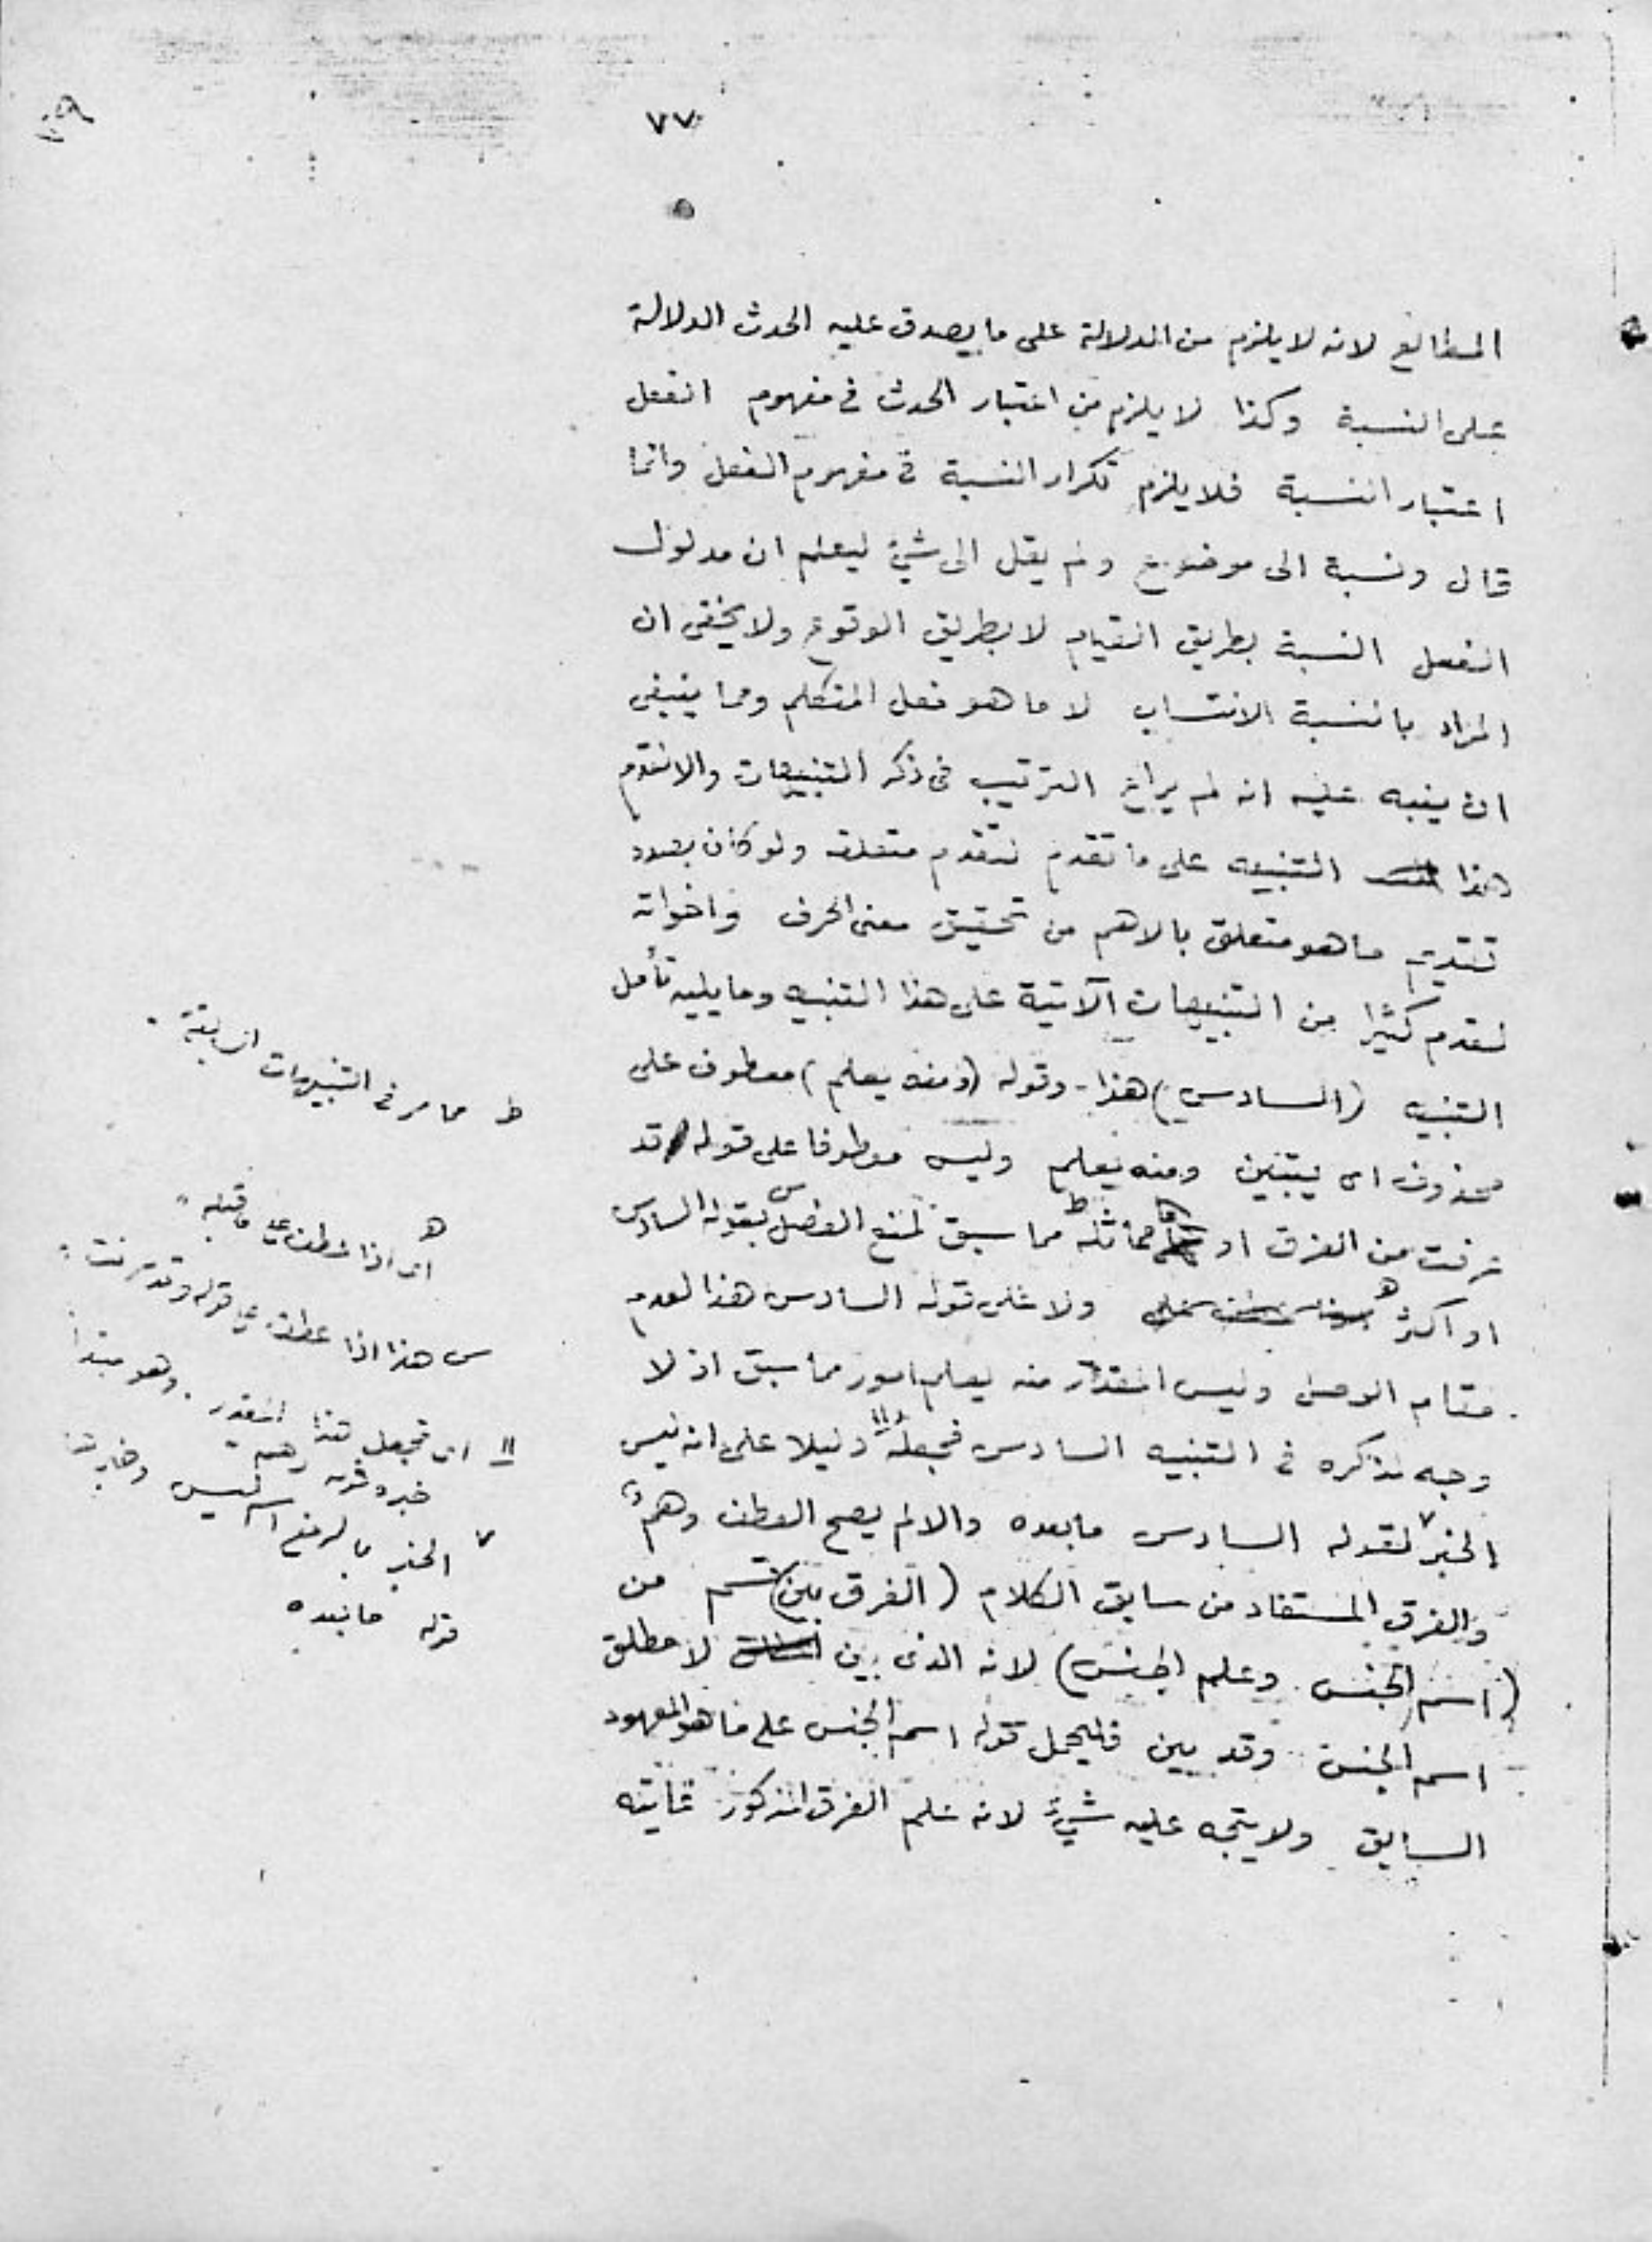 ٧٧
المطالع لانه لا يلزم من الدلالة على ما يصدق عليه الحدث الدلالة
على النسبة وكذا لا يلزم من اعتبار الحدث فى مفهوم الفعل
اعتبار النسبة فلا يلزم تكرار النسبة فى مفهوم الفعل وانما
قال ونسبة الى موضوع ولم يقل الى شيئ ليعلم ان مدلول
الفعل النسبة بطريق القيام لا بطريق الوقوع ولا يخفى ان
المراد بالنسبة الانتساب لا ما هو فعل المتكلم ومما ينبغى
ان ينبه عليه انه لم يراع الترتيب فى ذكر التنبيهات والا لتقدم
هذا التنبيه على ما تقدم لتقدم متعلقه ولو كان بصدد
تقديم ما هو متعلق بالاهم من تحقيق معنى الحرف واخواته
لقدم كثيرا من التنبيهات الآتية على هذا التنبيه وما يليه تأمل
التنبيه (السادس) هذا - وقوله (ومنه يعلم) معطوف على
محذوف اى يتبين ومنه يعلم وليس معطوفا على قوله قد
عرفت من الفرق او مماثله ط مما سبق لمنع الفصل س بقوله السادس
او اكثر ه ولا على قوله السادس هذا لعدم
مقام الوصل وليس المقدار منه يعلم امور مما سبق اذ لا
وجه لذكره فى التنبيه السادس فجعله اا دليلا على انه ليس
الخبر ٧ لقوله السادس ما بعده والا لم يصح العطف وهم
والفرق المستفاد من سابق الكلام (الفرق بين) قسم من
(اسم الجنس وعلم الجنس) لانه الذى بين لا مطلق
اسم الجنس وقد بين فليحمل قوله اسم الجنس على ما هو المعهود
السابق ولا يتجه عليه شيئ لانه علم الفرق المذكور غايته
ط مما مر فى التنبيهات السابقة
ه اى اذا عطف على ما قبله
س هذا اذا عطف على قوله وقد عرفت
اا اى فجعل هذا المقدر . وهو مبتدأ
خبره قوله وهم
٧ الخبر بالرفع اسم ليس وخبرها
قوله ما بعده